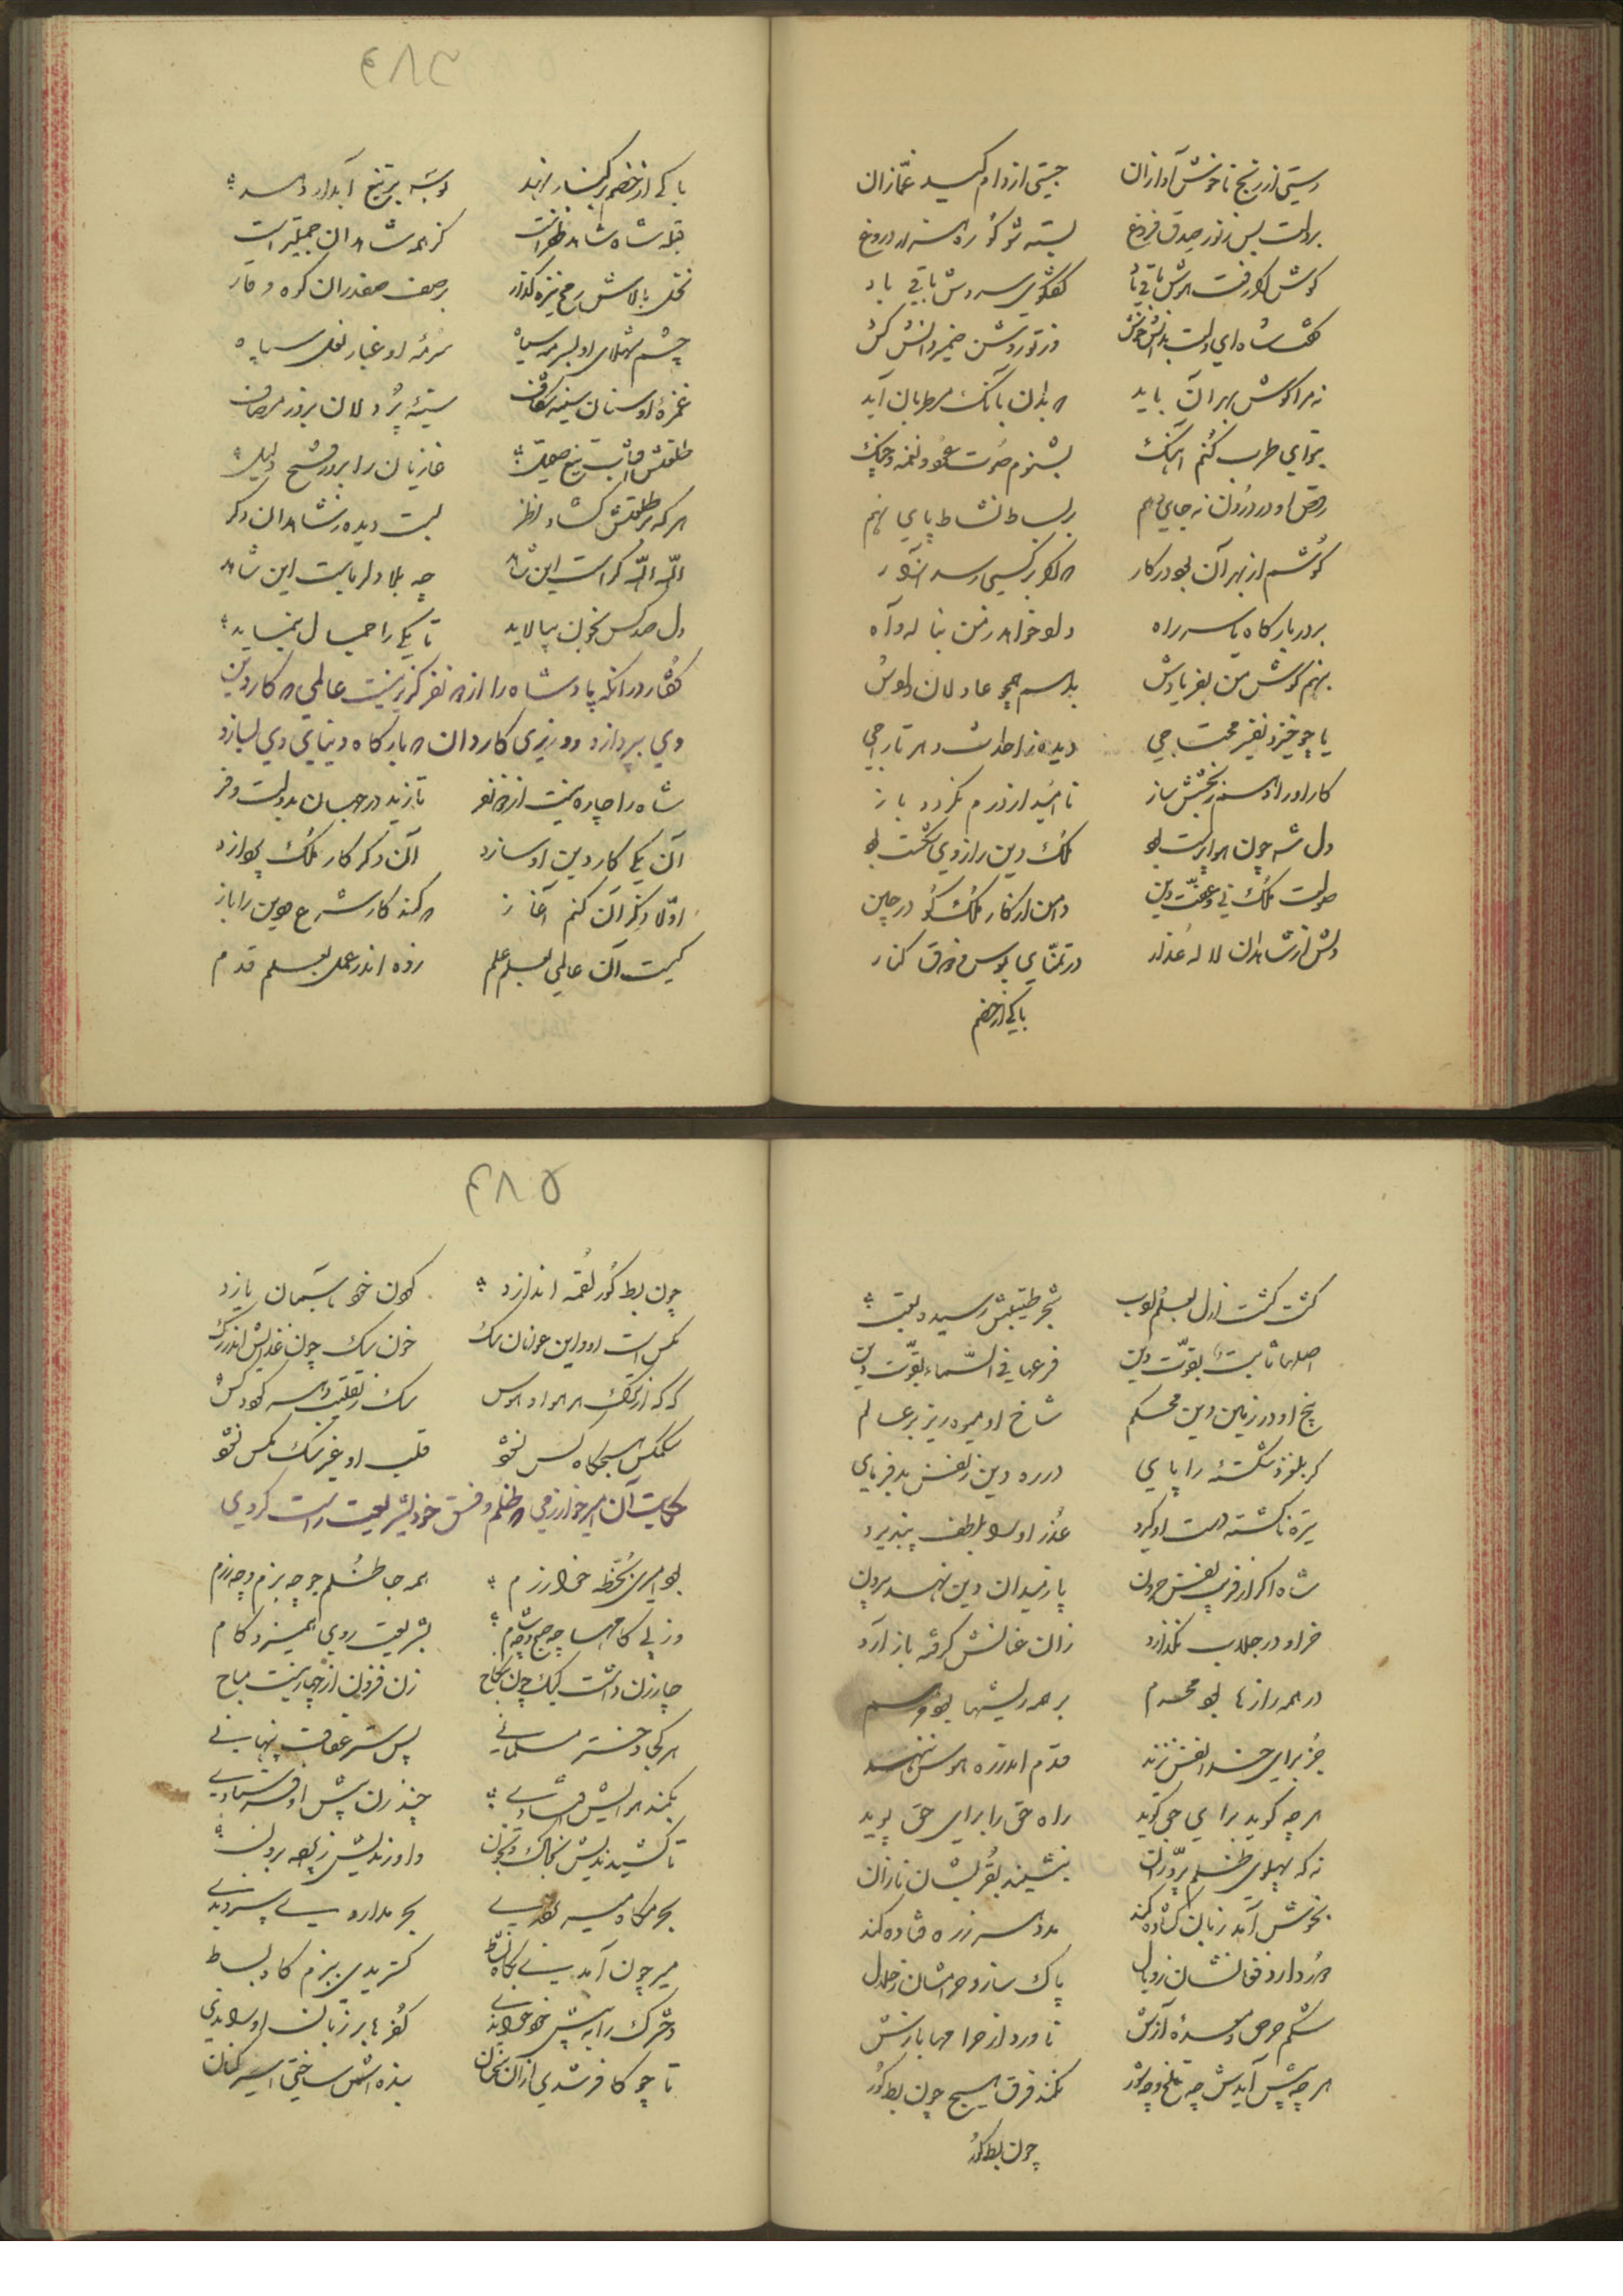 رستی از رنج ناخوش آوازان جستی از دام کید غمّازان
بر دلت بس ز نور صدق فروغ بسته شو کو ره فسانه دروغ
گوش کر رفت هوش باقی باد گفتگوی سروش باقی باد
گفت شاه ای دلت بدانش خوش وز تو روشن ضمیر دانش کش
نه مرا گوش بهر آن باید که بدان بانگ مطربان آید
بنوای طرب کنم آهنگ بشنوم صوت عود و نغمه چنگ
رقص او در درون نه جای دهم بر بساط نشاط پای نهم
گوشم از بهر آن بود در کار که اگر بر کسی رسد آزار
بر در بارگاه یا سر راه داد خواهد ز من بناله و آه
بنهم گوش من بفریادش بدهم همچو عادلان دادش
یا چو خیزد نفیر محتاجی دیده از حادثات دهر تاراجی
کار او را دهم ببخشش ساز ناامید از درم نگردد باز
دل شه چون هواپرست بود ملک و دین را ازو شکست بود
صولت ملک نی و عفّت دین دامن از کار ملک گو در چین
دلش از شاهدان لاله عذار در تمنّای بوس و ذوق کنار
با یکی از خصم
۴۸۴
با یکی از خصم بر کنار نهد بوسه بر تیغ آبدار دهد
قبله شاه شاهد ظفر است کز همه شاهدان جمیلتر است
نخل بالاش رمح نیزه گذار بر صف صفدران کوه وقار
چشم شهلای او بسرمه سیاه سرمهٔ او غبار نعل سپاه
غمزهٔ او سنان سینه شکاف سینهٔ پردلان بروز مصاف
طلعتش آفتاب تیغ صقیل غازیان را بروز فتح دلیل
هر که بر طلعتش گشاد نظر بست دیده ز شاهدان دگر
اللّه اللّه کراست این شاهد چه بلا دلرباست این شاهد
دل صد کس بخون بپالاید تا یکی را جمال بنماید
گفتار در آنکه پادشاه را از دو نفر گزیر نیست عالمی که کار دین
وی بپردازد و وزیری کاردان که بارگاه دنیایی وی بسازد
شاه را چاره نیست از دو نفر تا زید در جهان بدولت و فر
آن یکی کار دین او سازد آن دگر کار ملک پردازد
اوّلا ذکر آن کنم آغاز که کند کار شرع و دین را باز
کیست آن عالمی بعلم علم زده اندر عمل بعلم قدم
کشت کشت ازل بعلم لوب شجر طیّبش رسیده بعیب
اصلها ثابت بقوّت دین فرعها فی السّماء بقوّت دین
بیخ او در زمین دین محکم شاخ او میوه ریز بر عالم
گر بلغزد شکسته را پای در ره دین ز نفس بدفرمای
تیره ناگشته دست او گیرد عذر او را بلطف بپذیرد
شاه اگر از فریب نفس حرون پا ز میدان دین نهد بیرون
خر او در جلاب نگذارد زان عنانش گرفته باز آرد
در همه رازها بود محرم بر همه ریشها بود مرهم
جز برای خدا نفس نزند قدم اندر ره هوس ننهد
هر چه گوید برای حق گوید راه حق را برای حق پوید
نه که پهلوی ظلم پرّوران بنشیند بقرب ایشان نازان
بخوش آمد زبان گشاده کند مدد هر ز ره فتاده کند
وزر دارد فعالشان ز وبال پاک سازد حرامشان ز حلال
شکم حرص و معدهٔ آزش ناورد از حرامها بازش
هر چه پیش آیدش چه تلخ و چه شور نکند فرق هیچ چون بط کور
چون بط کور
۴۸۵
چون بط کور لقمه اندازد گردن خود بآسمان یازد
مگس است او و این عوانان سگ خون سگ چون غذایش اندر رگ
که که از ننگ هر هوا و هوس سگ ز تقلیب به شود کرکس
سگ مگس هیچگاه کس نشود قلب او غیر سگ مگس نشود
حکایت آن امیر خوارزمی که ظلم و فسق خود بشریعت راست کردی
بود امیری بخطّهٔ خوارزم همه جا ظلم جو چه بزم و چه رزم
وز پی کامها چه صبح و چه شام بشریعت روی همی زد گام
چار زن داشت لیک چون بنکاح زن فزون از چهار نیست مباح
هر کجا دختر مسلمانی پس ستر عفاف پنهانی
بکمند هوایش افتادی چند زن پیش او فرستادی
تا کشیدندیش بخاک و بخون داوریدیش ز پرده برون
بحرمگاه میر بردندی بحرمداریی سپردندی
میر چون آمدی بگاه نشاط گستریدی ببزم گاه بساط
دخترک را به پیش خود خواندی کفرها بر زبان او راندی
تا چو کافر شدی از آن سخنان بنده‌اش ساختی اسیر کنان